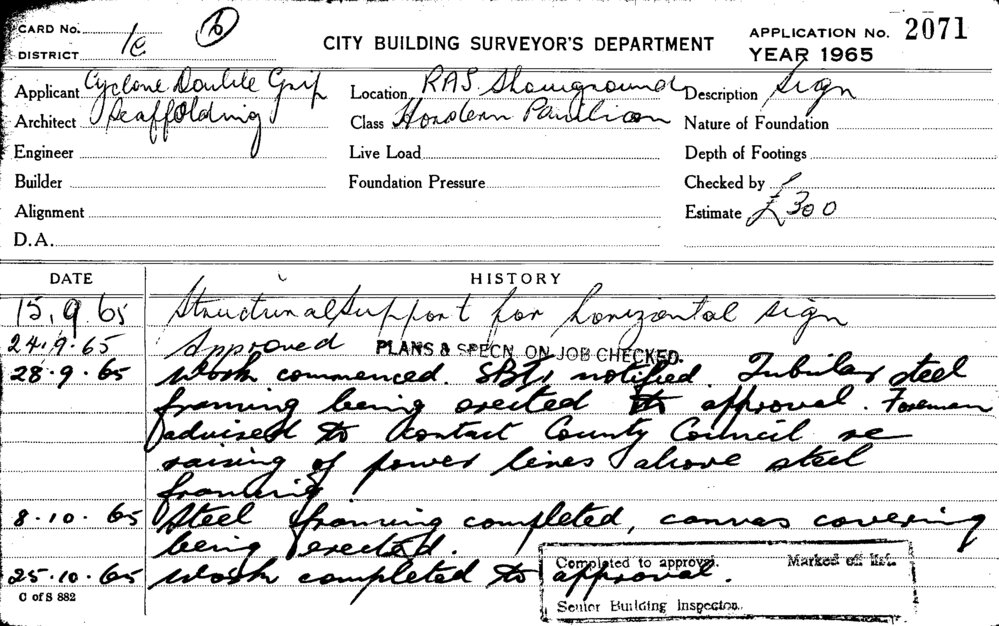 CARD No.
DISTRICT 1c
6
CITY BUILDING SURVEYOR'S DEPARTMENT
APPLICATION No. 2071
YEAR 1965
Applicant Cyclone Double Grip
Architect Scaffolding
Engineer
Builder
Alignment
D.A.
Location RAS Showground
Class Hordern Pavilion
Live Load
Foundation Pressure
Description Sign
Nature of Foundation
Depth of Footings
Checked by
Estimate £300
DATE HISTORY
15.9.65 Structural support for horizontal sign
24.9.65 Approved PLANS & SPECN. ON JOB CHECKED.
28.9.65 Work commenced. notified. Tubular steel
framing being erected to approval. Foreman
advised to contact County Council re
raising of power lines above steel
framing
8.10.65 Steel framing completed, canvas covering
being erected.
25.10.65 Work completed to approval.
Completed to approval. Marked off list.
Senior Building Inspector.
C of S 882